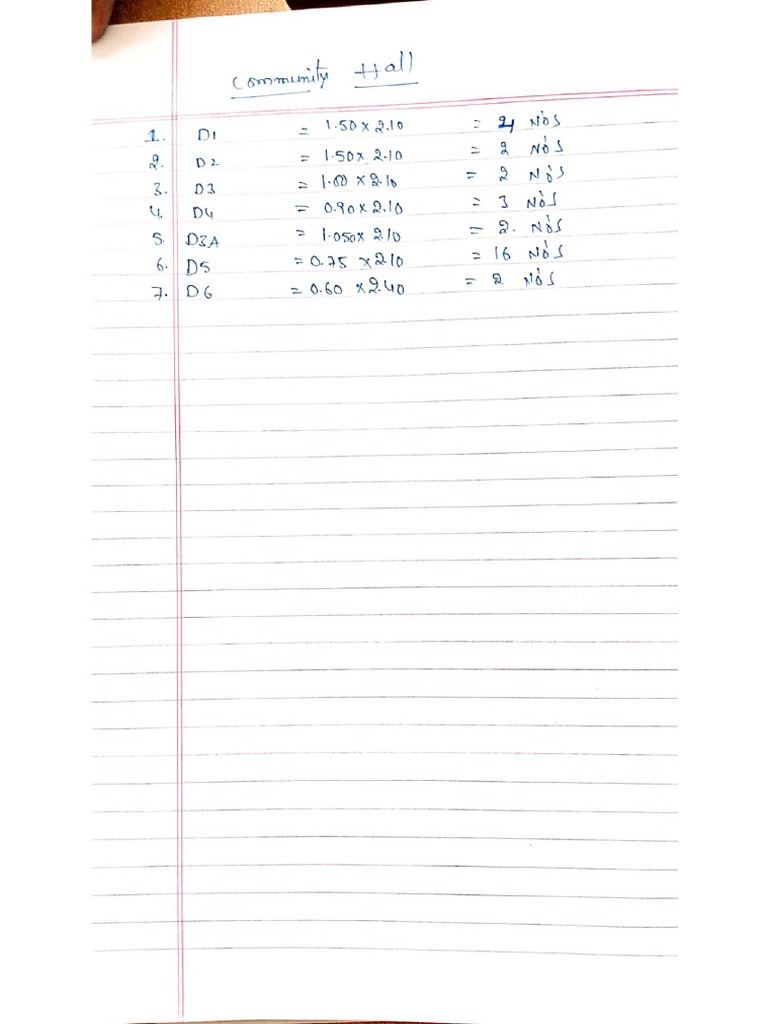 Community Hall
1. D1 = 1.50 x 2.10 = 4 No's
2. D2 = 1.50 x 2.10 = 2 No's
3. D3 = 1.00 x 2.10 = 2 No's
4. D4 = 0.90 x 2.10 = 3 No's
5. D3A = 1.050 x 2.10 = 2. No's
6. D5 = 0.75 x 2.10 = 16 No's
7. D6 = 0.60 x 2.40 = 2 No's